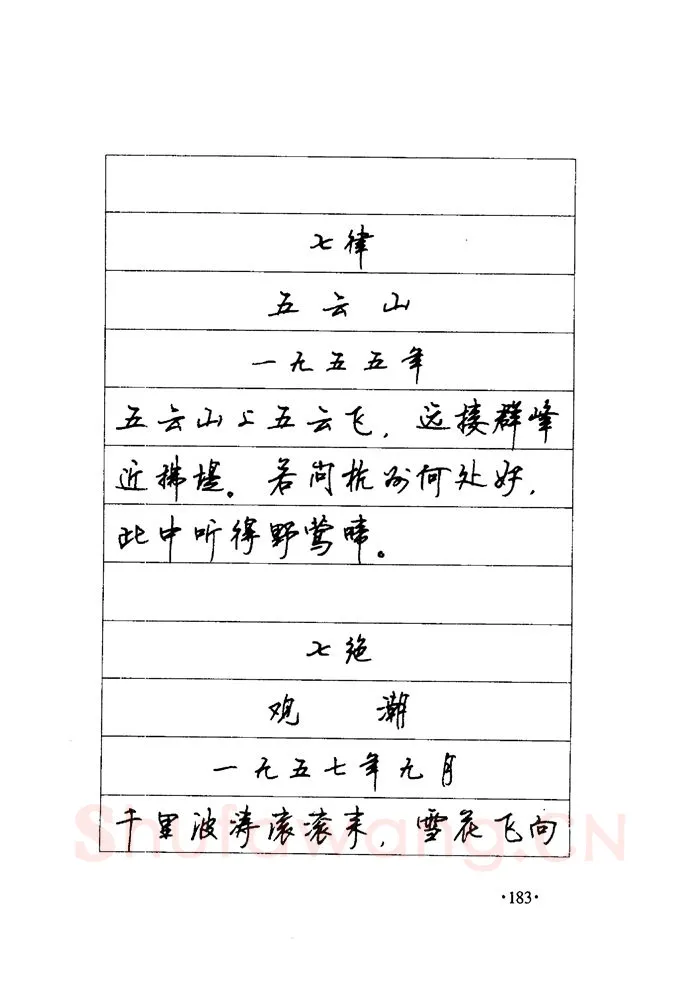 七律
五云山
一九五五年
五云山上五云飞，远接群峰
近拂堤。若问杭州何处好，
此中听得野莺啼。
七绝
观潮
一九五七年九月
千里波涛滚滚来，雪花飞向
Shufawang.CN
·183·